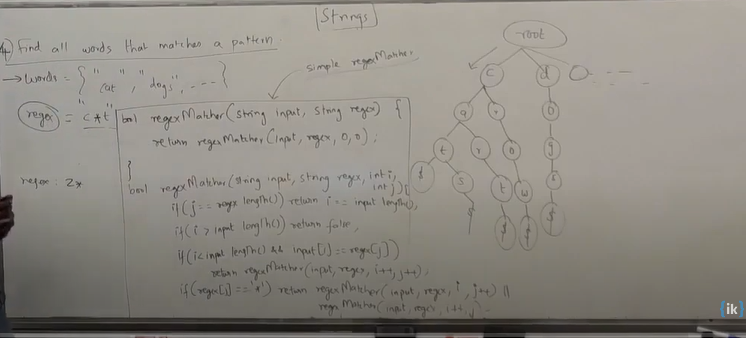 Strings
4) Find all words that matches a pattern.
→ Words = { "cat", "dogs", --- }
simple regexMatcher
regex = "c*t"
bool regexMatcher(string input, string regex) {
return regexMatcher(input, regex, 0, 0);
}
regex: z*
bool regexMatcher(string input, string regex, int i, int j){
if(j== regex length()) return i == input length();
if(i > input length()) return false;
if(i<input length() && input[i]==regex[j])
return regexMatcher(input, regex, i++, j++);
if(regex[j]=='*') return regexMatcher(input, regex, i, j++) ||
regexMatcher(input, regex, i++, j);
root
c d
a r o
t r o g
$ s t w s
$ $ $
{ik}